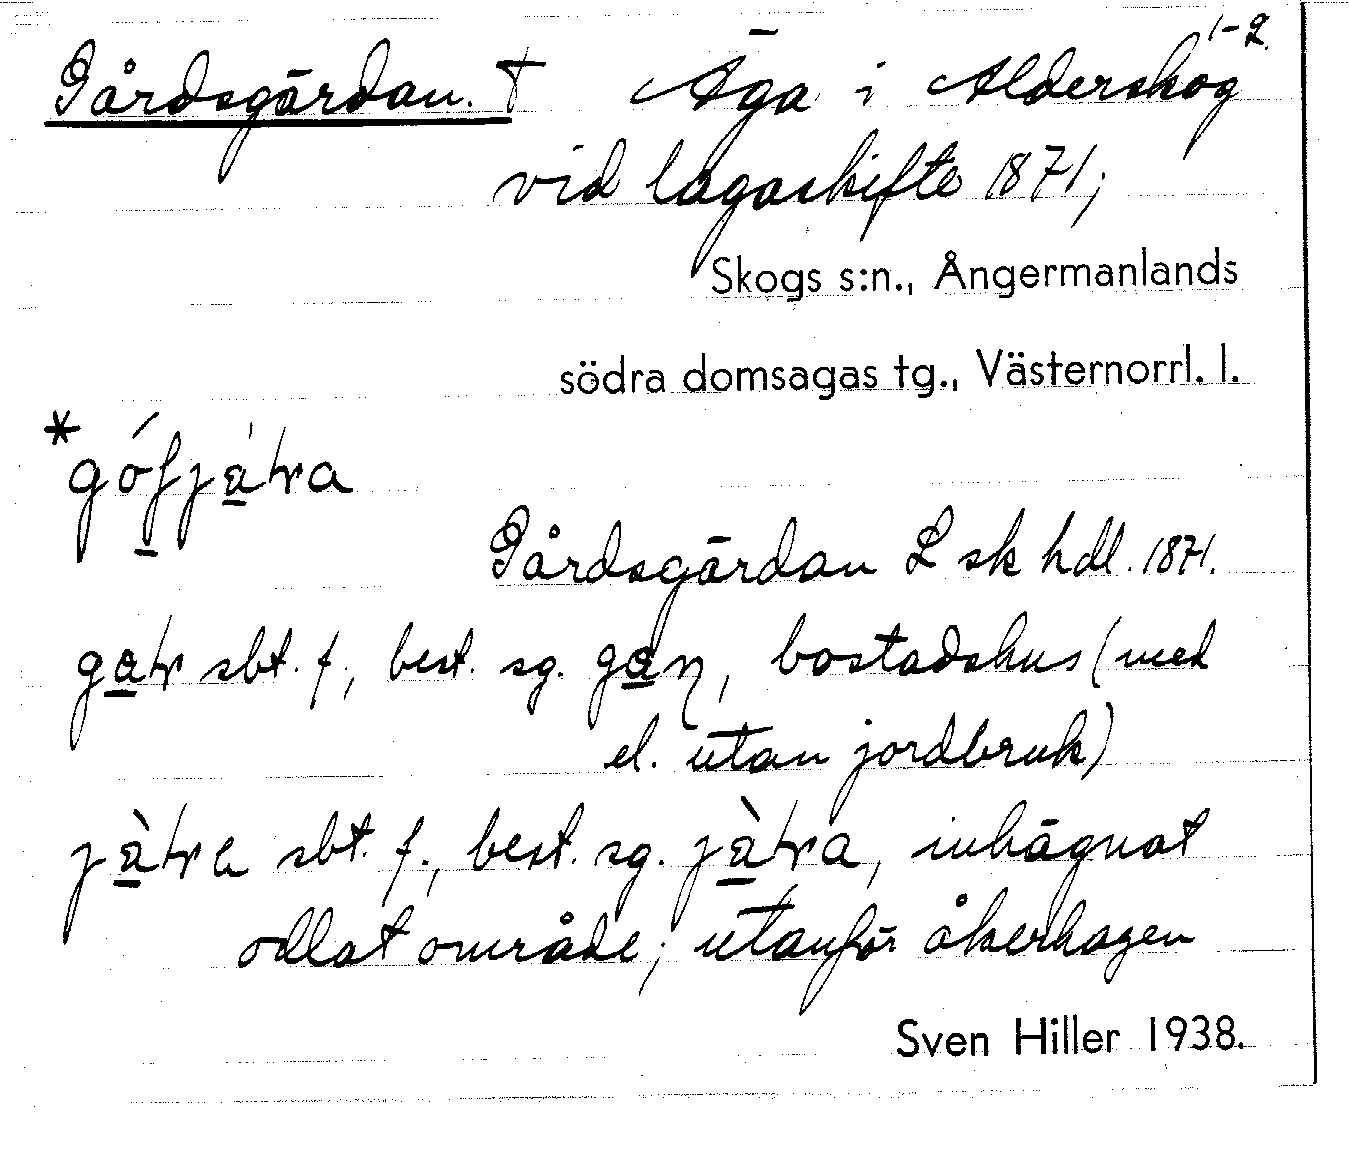 Gårdsgärdan. † Äga i Alderskog 1-2.
vid lagaskifte 1871;
Skogs s:n., Ångermanlands
södra domsagas tg., Västernorrl. l.
*
Gårdsgärdan L sk hdl. 1871.
sbt. f., best. sg. bostadshus (med
el. utan jordbruk)
sbt. f., best. sg. inhägnat
odlat område; utanför åkerhagen
Sven Hiller 1938.